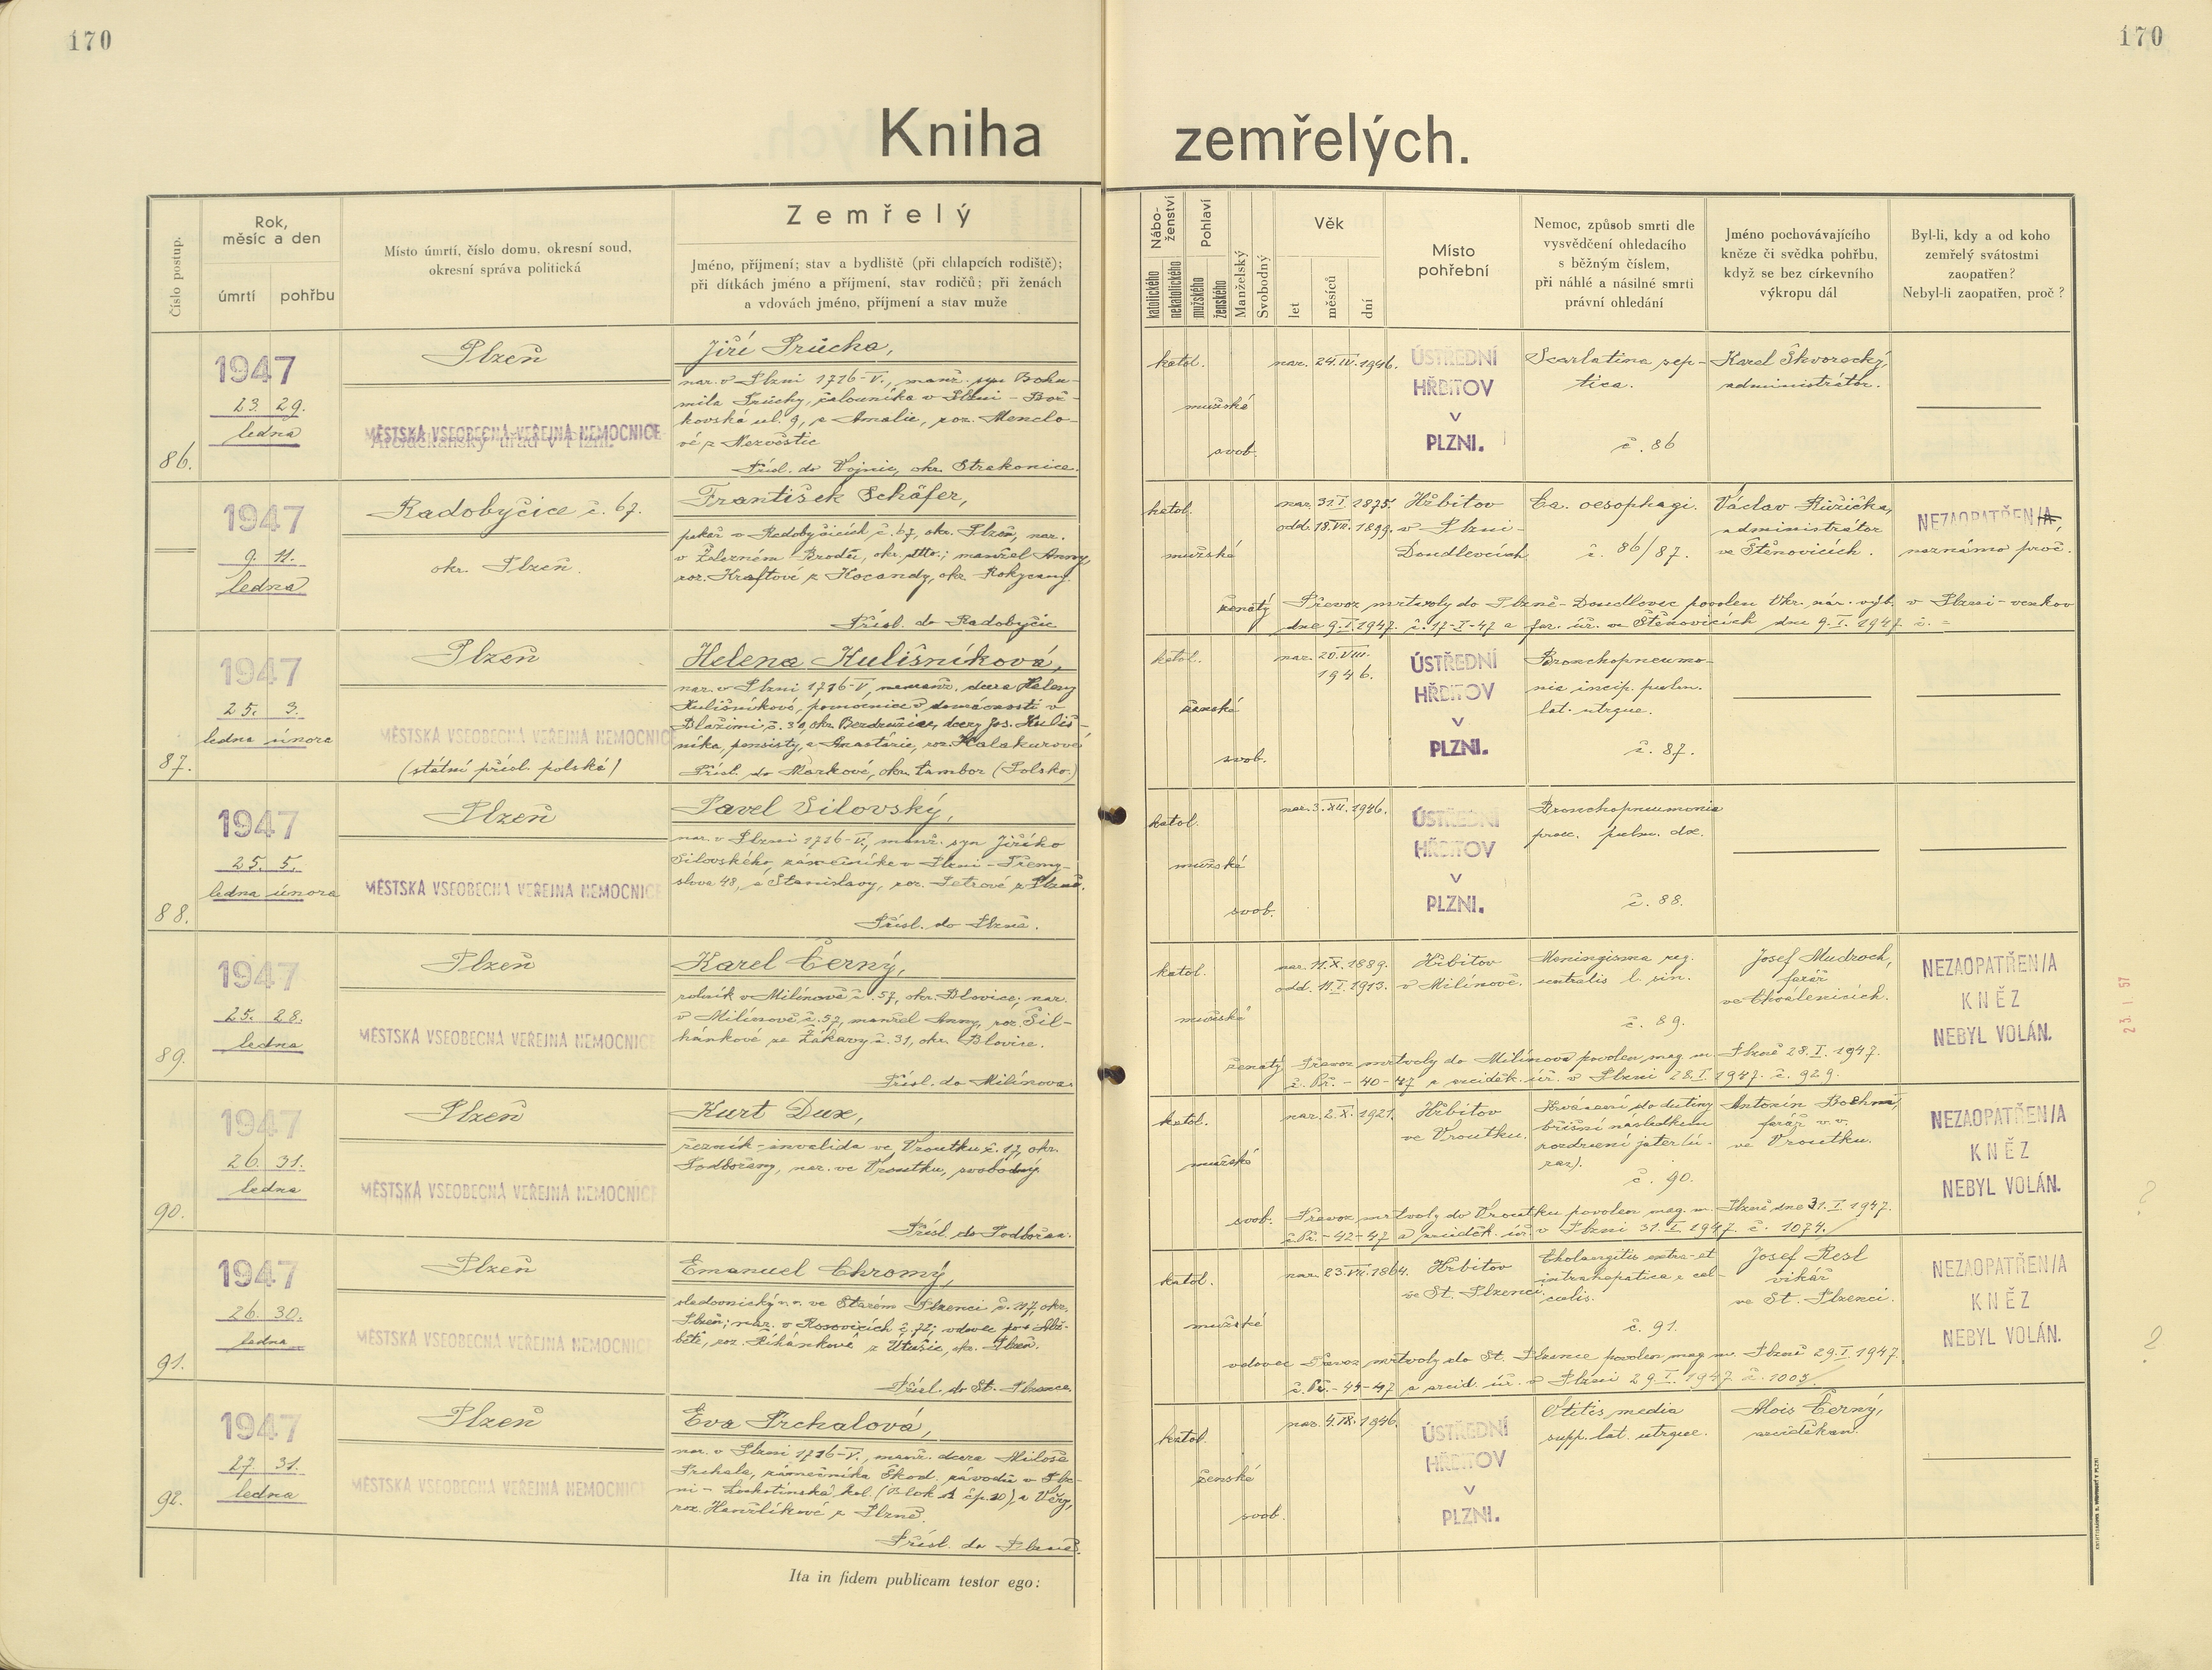 170
170
Kniha zemřelých.
Číslo postup.
Rok, měsíc a den
úmrtí
pohřbu
Místo úmrtí, číslo domu, okresní soud,
okresní správa politická
Zemřelý
Jméno, příjmení; stav a bydliště (při chlapcích rodiště);
při dítkách jméno a příjmení, stav rodičů; při ženách
a vdovách jméno, příjmení a stav muže
Nábo-
ženství
katolického
nekatolického
Pohlaví
mužského
ženského
Manželský
Svobodný
Věk
let
měsíců
dní
Místo
pohřební
Nemoc, způsob smrti dle
vysvědčení ohledacího
s běžným číslem,
při náhlé a násilné smrti
právní ohledání
Jméno pochovávajícího
kněze či svědka pohřbu,
když se bez církevního
výkropu dál
Byl-li, kdy a od koho
zemřelý svátostmi
zaopatřen?
Nebyl-li zaopatřen, proč ?
86.
1947
23. 29.
ledna
Plzeň
MĚSTSKÁ VŠEOBECNÁ VEŘEJNÁ NEMOCNICE
Arciděkanský úřad v Plzni.
Jiří Průcha,
nar. v Plzni 1716-V., manž. syn Bohu-
mila Průchy, čalouníka v Plzni - Bož-
kovská ul. 9, a Amalie, roz. Menclo-
vé z Nezvěstic
Přísl. do Vojnic, okr. Strakonice.
katol.
mužské
svob.
nar. 24.IV.1946.
ÚSTŘEDNÍ
HŘBITOV
V
PLZNI.
Scarlatina sep-
tica.
č. 86
Karel Škvorecký,
administrátor.
1947
9. 11.
ledna
Radobyčice č. 67.
okr. Plzeň.
František Schäfer,
pekař v Radobyčicích č. 67, okr. Plzeň, nar.
v Železném Brodě, okr. dtto.; manžel Anny,
roz. Kraftové z Kocandy, okr. Rokycany.
Přísl. do Radobyčic
katol.
mužské
ženatý
nar. 31.I.1875.
odd. 18.VII.1899.
Hřbitov
v Plzni-
Doudlevcích
Ca. oesophagi.
č. 86/87.
Václav Růžička,
administrátor
ve Štěnovicích.
NEZAOPATŘEN/A,
neznámo proč.
Převoz mrtvoly do Plzně-Doudlevec povolen Okr. nár. výb. v Plzni-venkov
dne 9.I.1947. č. 17-I-47 a far. úř. ve Štěnovicích dne 9.I.1947. č. =
87.
1947
25. 3.
ledna února
Plzeň
MĚSTSKÁ VŠEOBECNÁ VEŘEJNÁ NEMOCNICE
(státní přísl. polské)
Helena Kulišníková,
nar. v Plzni 1716-V, nemanž. dcera Heleny
Kulišníkové, pomocnice v domácnosti v
Blažimi č. 30, okr. Bezdružice, dcery Jos. Kuliš-
níka, pensisty, a Anastázie, roz. Kalakurové
Přísl. do Markové, okr. Tambor (Polsko.)
katol.
ženské
svob.
nar. 20.VIII.
1946.
ÚSTŘEDNÍ
HŘBITOV
V
PLZNI.
Bronchopneumo-
nia incip. pulm.
lat. utrque.
č. 87.
88.
1947
25. 5.
ledna února
Plzeň
MĚSTSKÁ VŠEOBECNÁ VEŘEJNÁ NEMOCNICE
Pavel Silovský,
nar. v Plzni 1716-V., manž. syn Jiřího
Silovského, zámečníka v Plzni - Přemy-
slova 48, a Stanislavy, roz. Petrové z Plzně.
Přísl. do Plzně.
katol.
mužské
svob.
nar. 3.XII.1946.
ÚSTŘEDNÍ
HŘBITOV
V
PLZNI.
Bronchopneumonia
praec. pulm. dx.
č. 88.
89.
1947
25. 28.
ledna
Plzeň
MĚSTSKÁ VŠEOBECNÁ VEŘEJNÁ NEMOCNICE
Karel Černý,
rolník v Milínově č. 57, okr. Blovice; nar.
v Milínově č. 57, manžel Anny, roz. Šil-
hánkové ze Žákavy č. 31, okr. Blovice.
Přísl. do Milínova.
katol.
mužské
ženatý
nar. 11.X.1889.
odd. 11.I.1913.
Hřbitov
v Milínově.
Meningioma reg.
centralis l. sin.
č. 89.
Josef Mudroch,
farář
ve Chválenicích.
NEZAOPATŘEN/A
KNĚZ
NEBYL VOLÁN.
23. I. 57
Převoz mrtvoly do Milínova povolen mag. m. Plzně 28.I.1947.
č. Př. - 40-47 a arciděk. úř. v Plzni 28.I.1947. č. 929.
90.
1947
26. 31.
ledna
Plzeň
MĚSTSKÁ VŠEOBECNÁ VEŘEJNÁ NEMOCNICE
Kurt Dux,
řezník-invalida ve Vroutku č. 17, okr.
Podbořany, nar. ve Vroutku, svobodný.
Přísl. do Podbořan.
katol.
mužské
svob.
nar. 2.X.1921.
Hřbitov
ve Vroutku.
Krvácení do dutiny
břišní následkem
rozdrcení jater (ú-
raz).
č. 90.
Antonín Boehm,
farář v.v.
ve Vroutku.
NEZAOPATŘEN/A
KNĚZ
NEBYL VOLÁN.
?
Převoz mrtvoly do Vroutku povolen mag. m. Plzně dne 31.I.1947.
č. Př. - 42-47 a arciděk. úř. v Plzni 31.I.1947. č. 1074.
91.
1947
26. 30.
ledna
Plzeň
MĚSTSKÁ VŠEOBECNÁ VEŘEJNÁ NEMOCNICE
Emanuel Chromý,
sladovnický v.v. ve Starém Plzenci č. 117, okr.
Plzeň; nar. v Rosovicích č. 72; vdovec po + Alž-
bětě, roz. Říhánkové z Útušic, okr. Plzeň.
Přísl. do St. Plzence.
katol.
mužské
vdovec
nar. 23.VII.1864.
Hřbitov
ve St. Plzenci.
Cholangitis extra-et
intrahepatica e cal-
culis.
č. 91.
Josef Resl
vikář
ve St. Plzenci.
NEZAOPATŘEN/A
KNĚZ
NEBYL VOLÁN.
?
Převoz mrtvoly do St. Plzence povolen mag. m. Plzně 29.I.1947.
č. Př. - 45-47 a arcid. úř. v Plzni 29.I.1947 č. 1003
92.
1947
27. 31.
ledna
Plzeň
MĚSTSKÁ VŠEOBECNÁ VEŘEJNÁ NEMOCNICE
Eva Prchalová,
nar. v Plzni 1716-V., manž. dcera Miloše
Prchala, zámečníka Škod. závodů v Plz-
ni - Lochotínská kol. (Blok A čp. 20), a Věry,
roz. Hanzlíkové z Plzně.
Přísl. do Plzně.
katol.
ženské
svob.
nar. 4.IX.1946.
ÚSTŘEDNÍ
HŘBITOV
V
PLZNI.
Otitis media
supp. lat. utrque.
Alois Černý,
arciděkan.
Ita in fidem publicam testor ego: